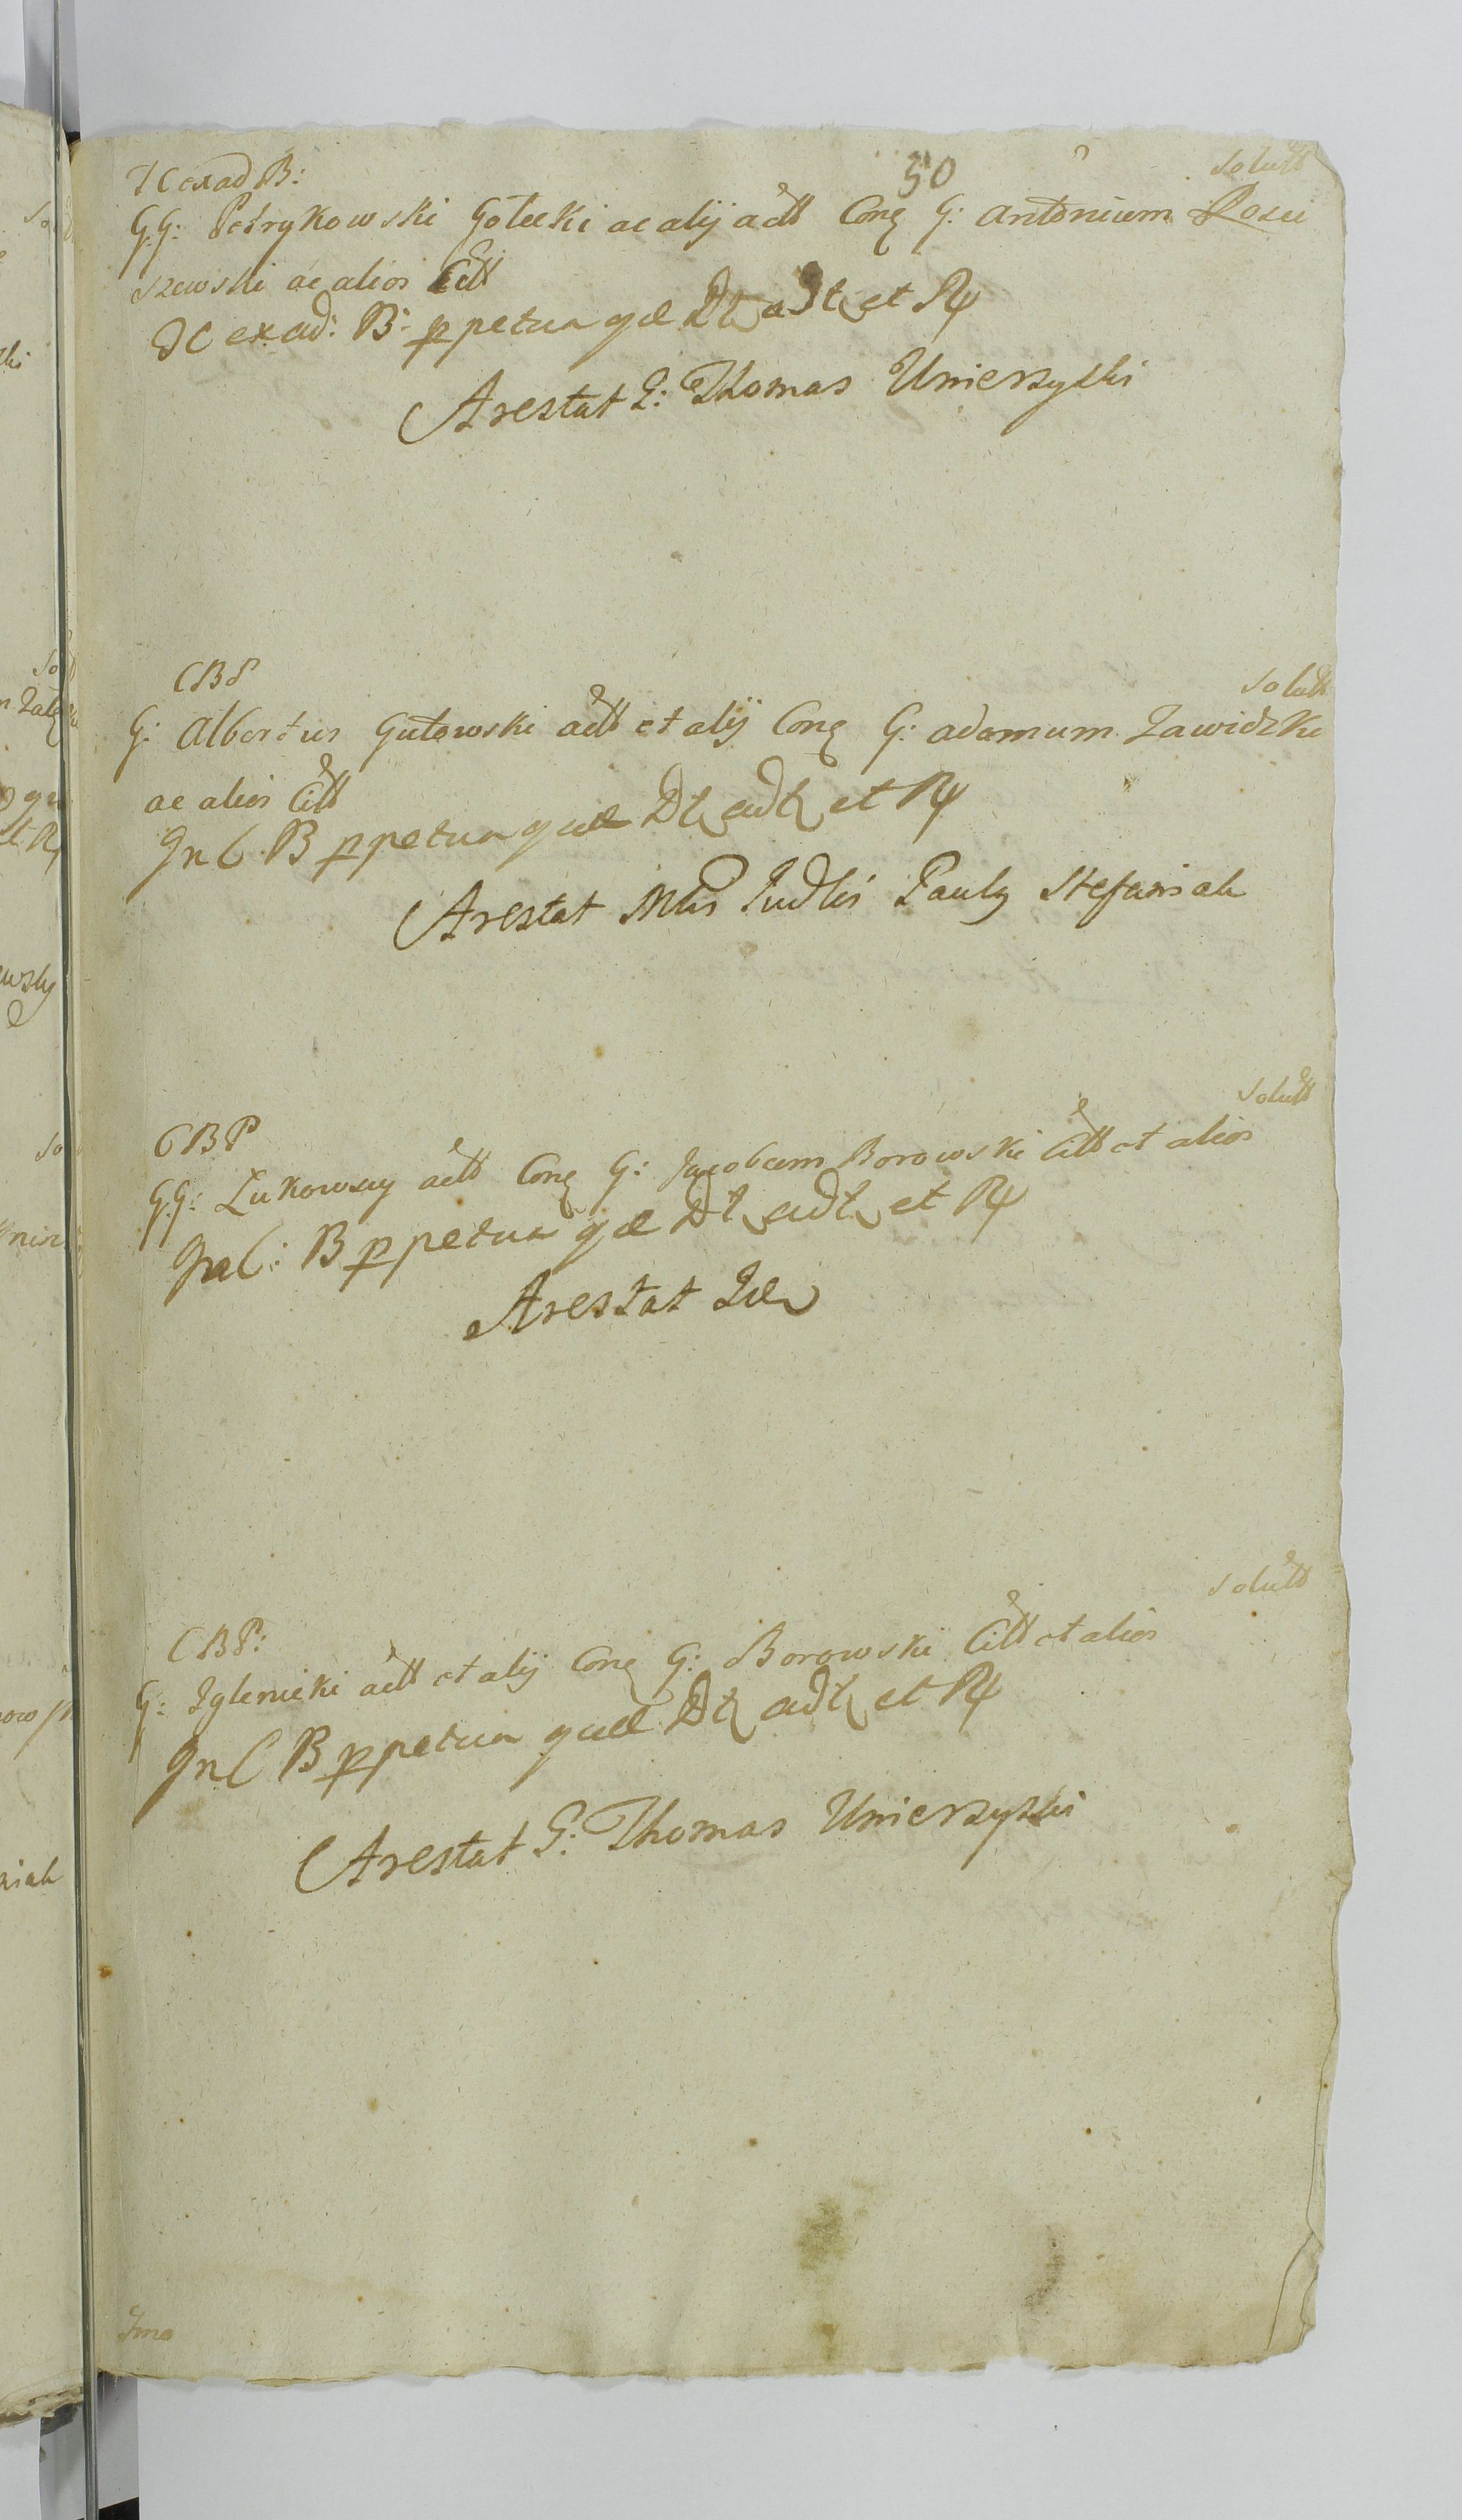 50
Solutt
IC exad B:
GG: Petrykowski Gołecki ac alij actt Cong G: Antonium Rosci
szewski ac alios Citt
IC ex ad: B: ppetua qae Dt adt et Rp
Arestat G: Thomas Unierzyski
CBP
Solutt
G: Albertus Gutowski actt et alij Cong G: Adamum Zawidzki
ac alios Citt
In C B ppetua quae Dt adt et Rp
Arestat Mtis Judlis Pauly Stefaniak
CBP
Solutt
GG: Łukowscy actt Cong G: Jacobum Borowski Citt et alios
In C: B ppetua qae Dt adt et Rp
Arestat
CBP:
Solutt
G: Iglenicki actt et alij Cong G: Borowski Citt et alios
In C B ppetua quae Dt adt et Rp
Arestat G: Thomas Unierzyski